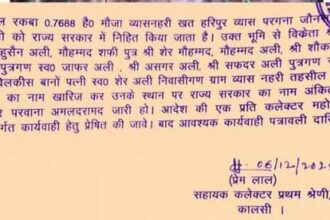 ल रकबा 0.7688 है0 मौजा व्यासनहरी खत हरिपुर व्यास परगना जौन
को राज्य सरकार में निहित किया जाता है। उक्त भूमि से विक्रेता
हुसैन अली, मौहम्मद शफी पुत्र श्री शेर मौहम्मद, मौहम्मद अली, श्री शौक
पुत्रगण स्व0 जाफर अली , श्री असगर अली, श्री सफदर अली पुत्रगण
लकीस बानों पत्नी स्व0 शेर अली निवासीगण ग्राम व्यास नहरी तहसील
का नाम खारिज कर उनके स्थान पर राज्य सरकार का नाम अंकि
र परवाना अमलदरामद जारी हो। आदेश की एक प्रति कलेक्टर मह
र्गत कार्यवाही हेतु प्रेषित की जावे। बाद आवश्यक कार्यवाही पत्रावली दाखि
06/12/202
(प्रेम लाल)
सहायक कलेक्टर प्रथम श्रेणी,
कालसी ।